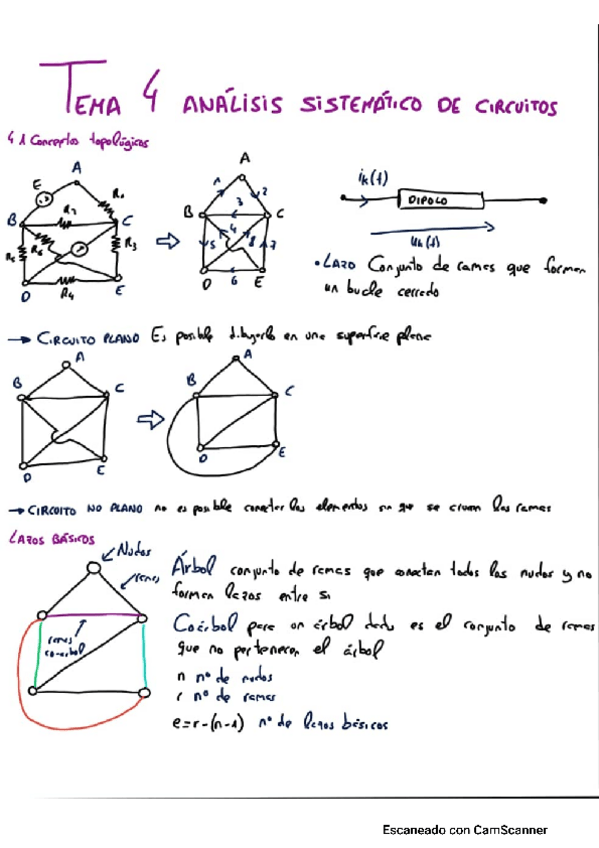 TEMA 4 ANÁLISIS SISTEMÁTICO DE CIRCUITOS
4.1 Conceptos topológicos
A
E
R1
B
R2
C
R5
R6
R3
D
R4
E
A
1
2
B
3
C
4
5
8
7
D
6
E
ik(t)
DIPOLO
uk(t)
• LAZO Conjunto de ramas que forman
un bucle cerrado
→ CIRCUITO PLANO Es posible dibujarlo en una superficie plana
A
B
C
D
E
A
B
C
D
E
→ CIRCUITO NO PLANO no es posible conectar los elementos sin que se crucen las ramas
LAZOS BÁSICOS
Nudos
ramas
ramas
co-árbol
Árbol conjunto de ramas que conectan todos los nudos y no
forman lazos entre si
Coárbol para un árbol dado es el conjunto de ramas
que no pertenecen el árbol
n nº de nudos
r nº de ramas
e=r-(n-1) nº de lazos básicos
Escaneado con CamScanner